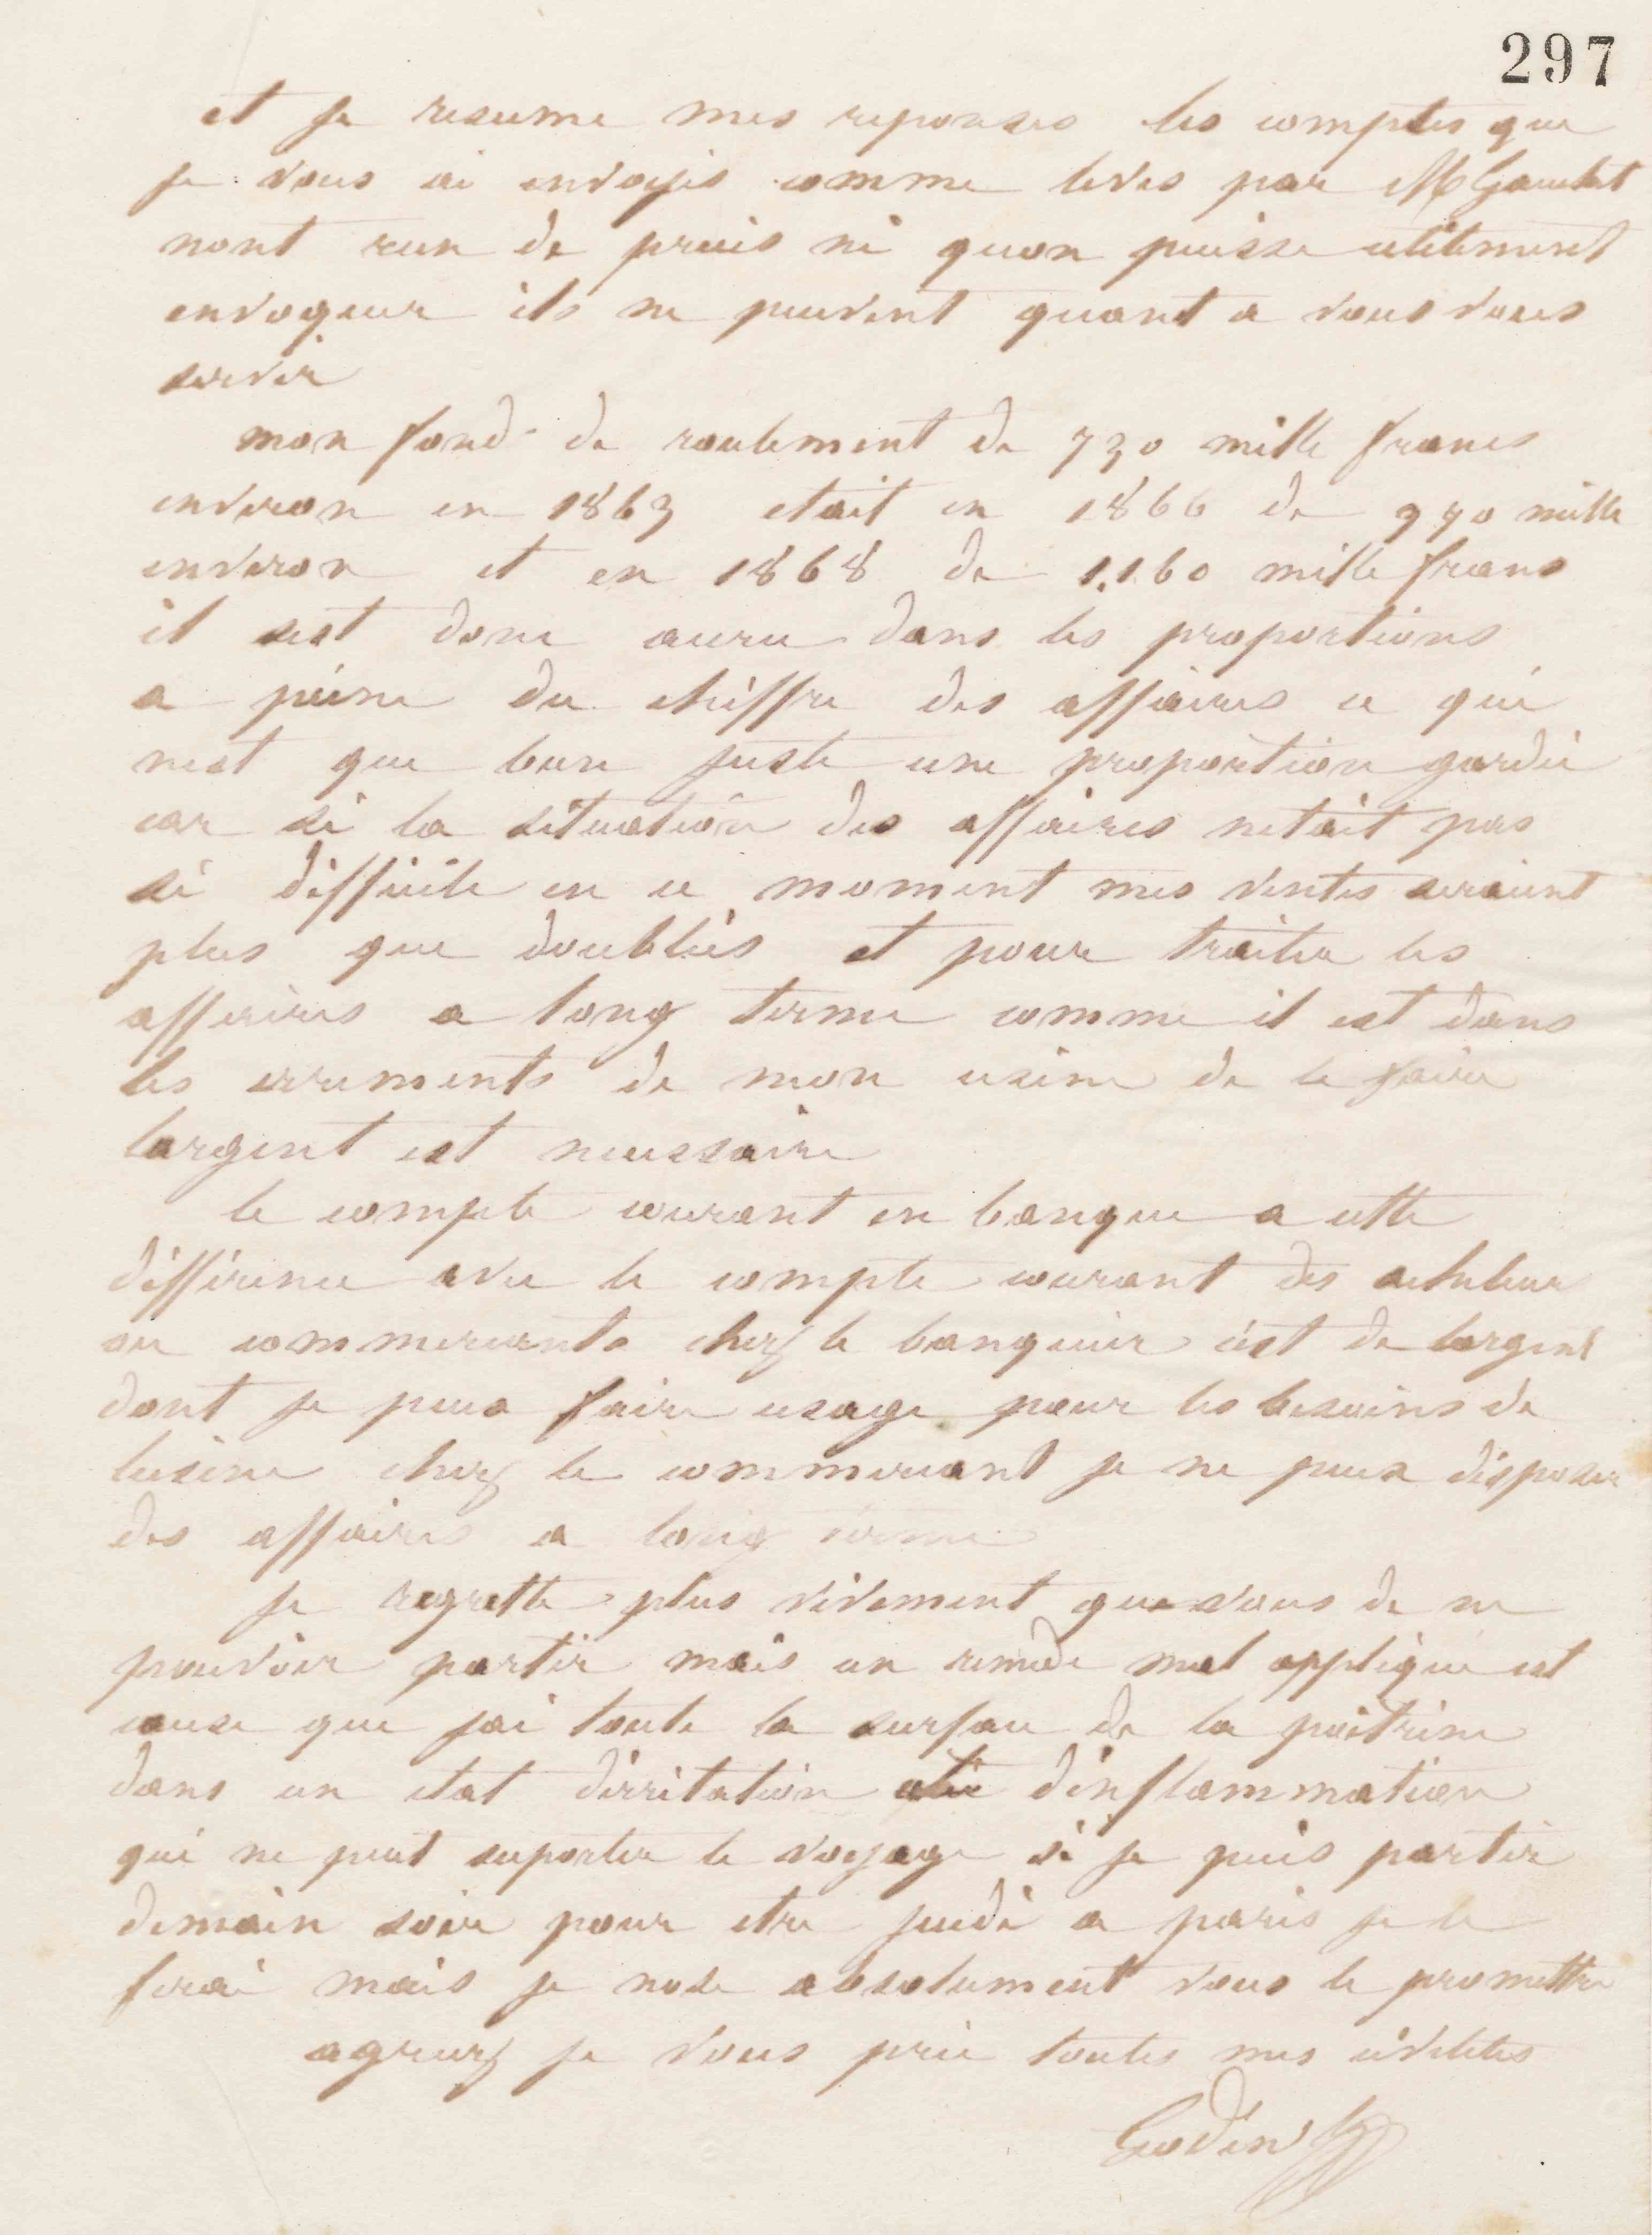 297
et je resume mes reponses les comptes que
je vous ai envoyés comme levés par M Gauchet
nont rien de precis ni quon puisse utilement
envoquer ils ne peuvent quant a vous vous
servir
mon fond de roulement de 730 mille francs
environ en 1863 etait en 1866 de 970 mille
environ et en 1868 de 1.160 mille francs
il sest donc accru dans les proportions
a peine du chiffre des affaires ce qui
nest que bien juste une proportion gardée
car si la situation des affaires netait pas
si difficile en ce moment mes ventes seraient
plus que doublées et pour traiter les
affaires a long terme comme il est dans
les errements de mon usine de le faire
largent est necessaire
le compte courant en banque a cette
différence avec le compte courant des acheteur
ou commercants chez le banquier cest de largent
dont je peux faire usage pour les besoins de
lusine chez le commercant je ne peux disposer
des affaires a long terme
je regrette plus vivement que vous de ne
pouvoir partir mais un remede mal appliqué est
cause que jai toute la surface de la poitrine
dans un etat dirritation dinflammation
qui ne peut suporter le voyage si je puis partir
demain soir pour etre jeudi a paris je le
ferai mais je nose absolument vous le promettre
agreez je vous prie toutes mes civilités
Godin